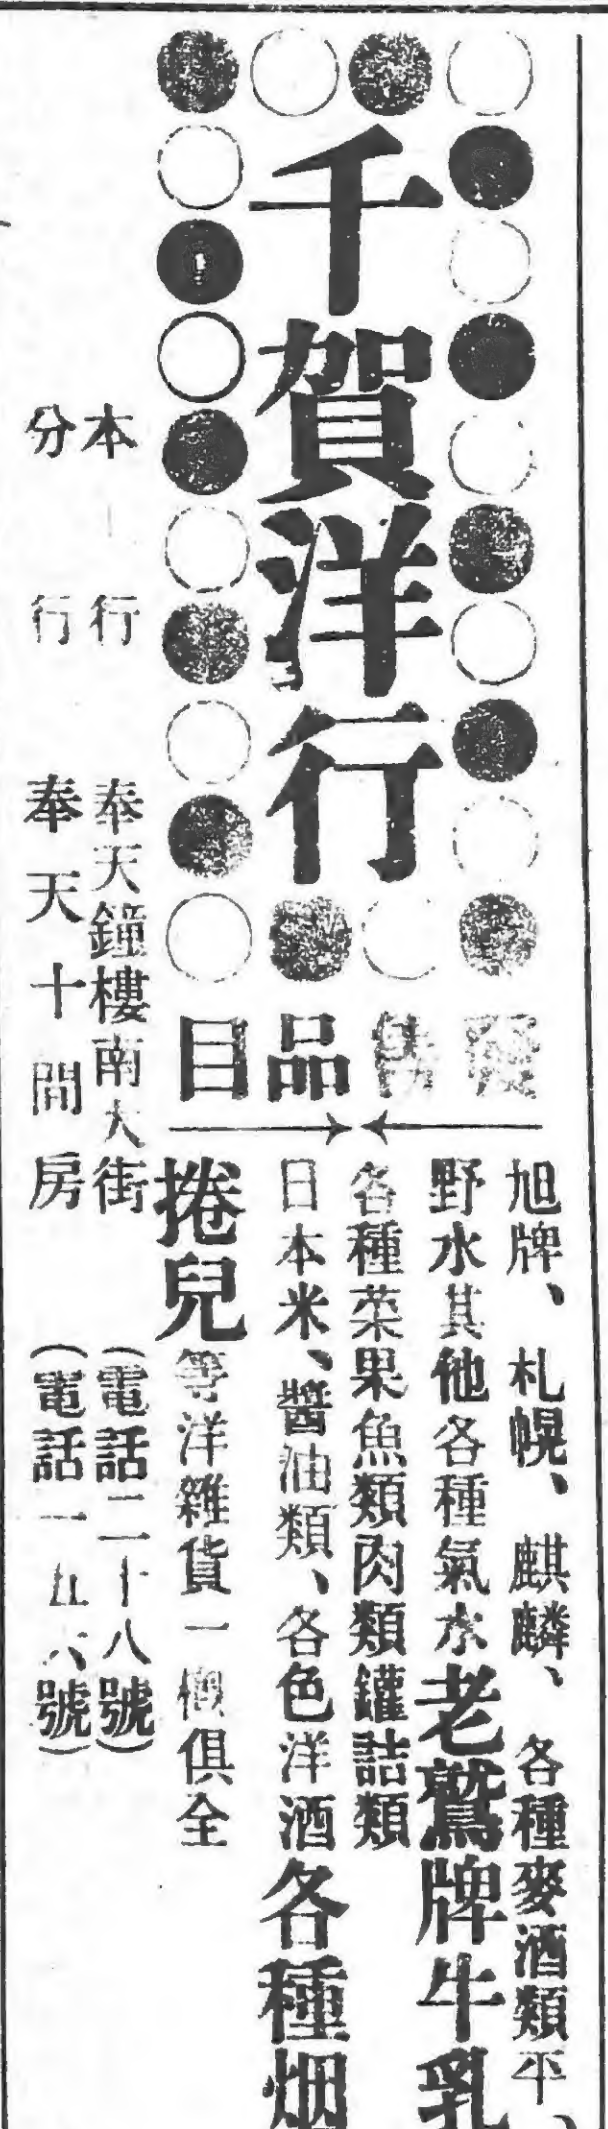 千賀洋行
發售品目
旭牌、札幌、麒麟、各種麥酒類平、
野水其他各種氣水老鷲牌牛乳
各種菜果魚類肉類罐詰類
日本米、醬油類、各色洋酒各種烟
捲兒等洋雜貨一概俱全
本行 奉天鐘樓南大街 (電話二十八號)
分行 奉天十間房 (電話一五六號)